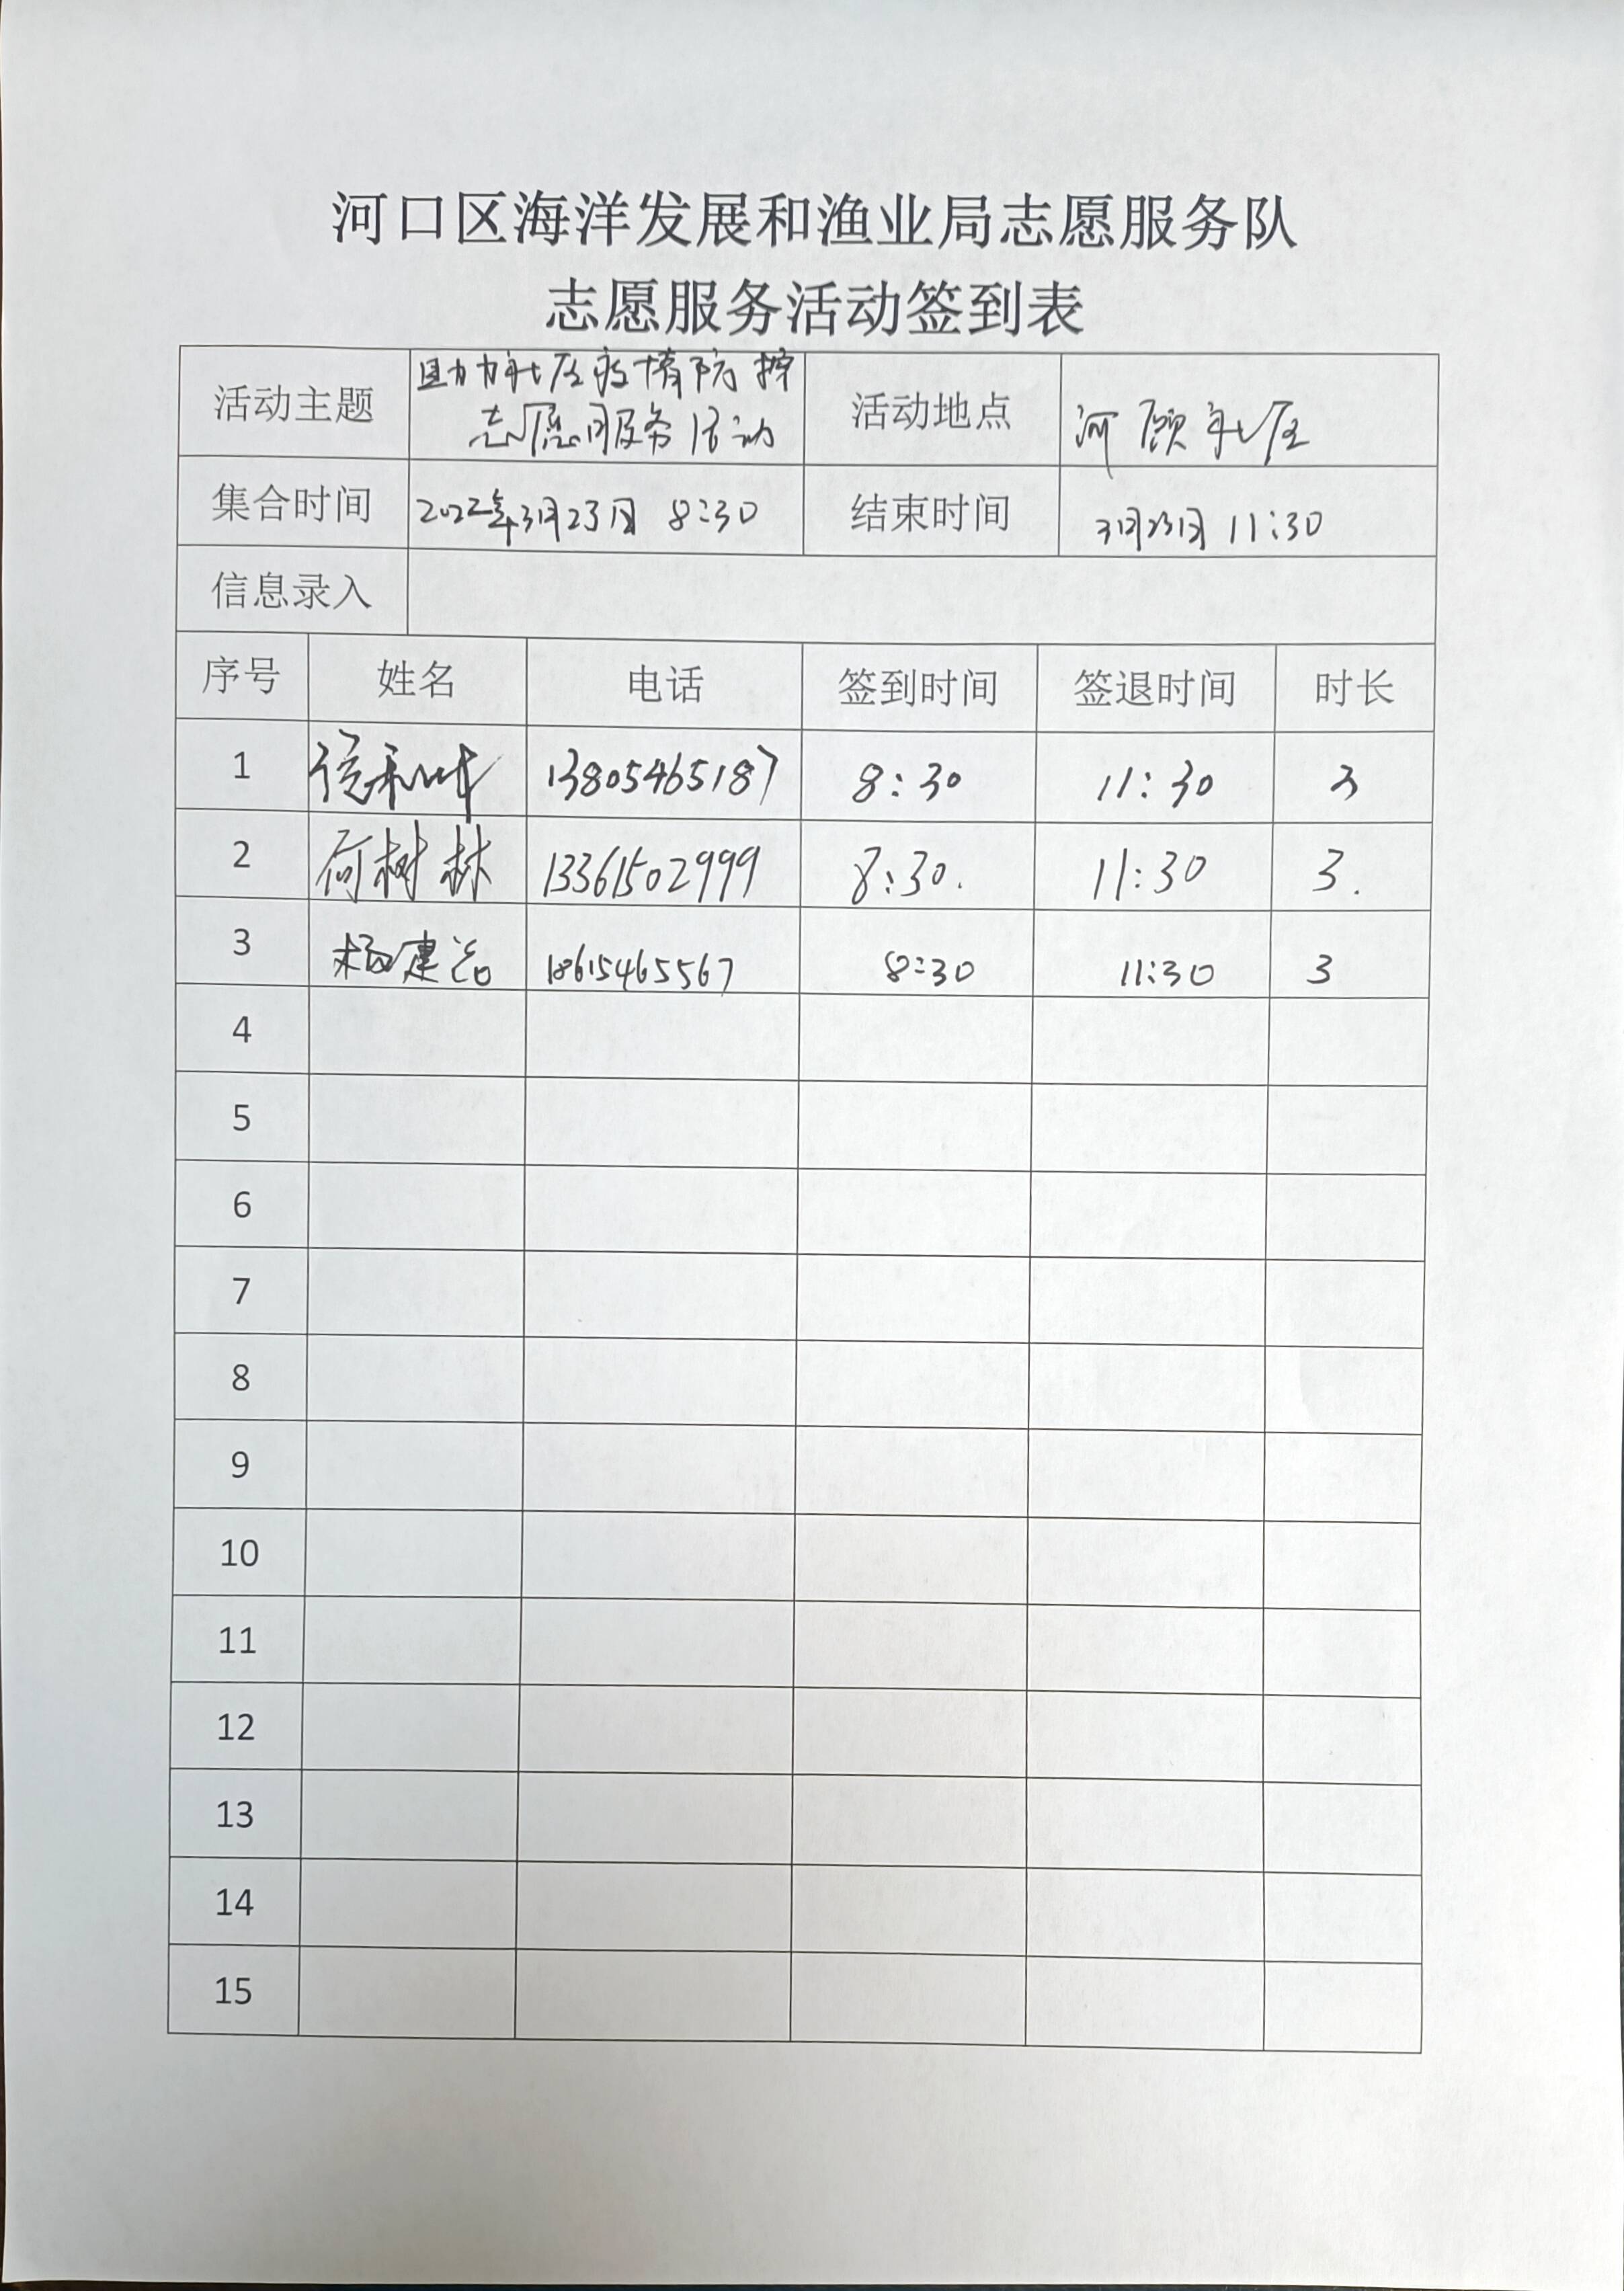 河口区海洋发展和渔业局志愿服务队
志愿服务活动签到表
活动主题 助力社区疫情防控 志愿服务活动 活动地点 河颐社区
集合时间 2022年3月23日 8:30 结束时间 3月23日 11:30
信息录入
序号 姓名 电话 签到时间 签退时间 时长
1 13805465187 8:30 11:30 3
2 何树林 13361502999 8:30. 11:30 3.
3 杨建 18615465567 8:30 11:30 3
4
5
6
7
8
9
10
11
12
13
14
15